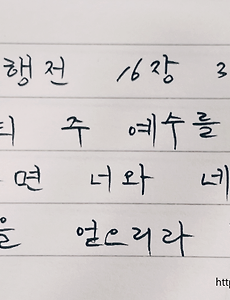 행전 16장 3
티 주 예수를
면 너와 네
을 얻으리라
htt